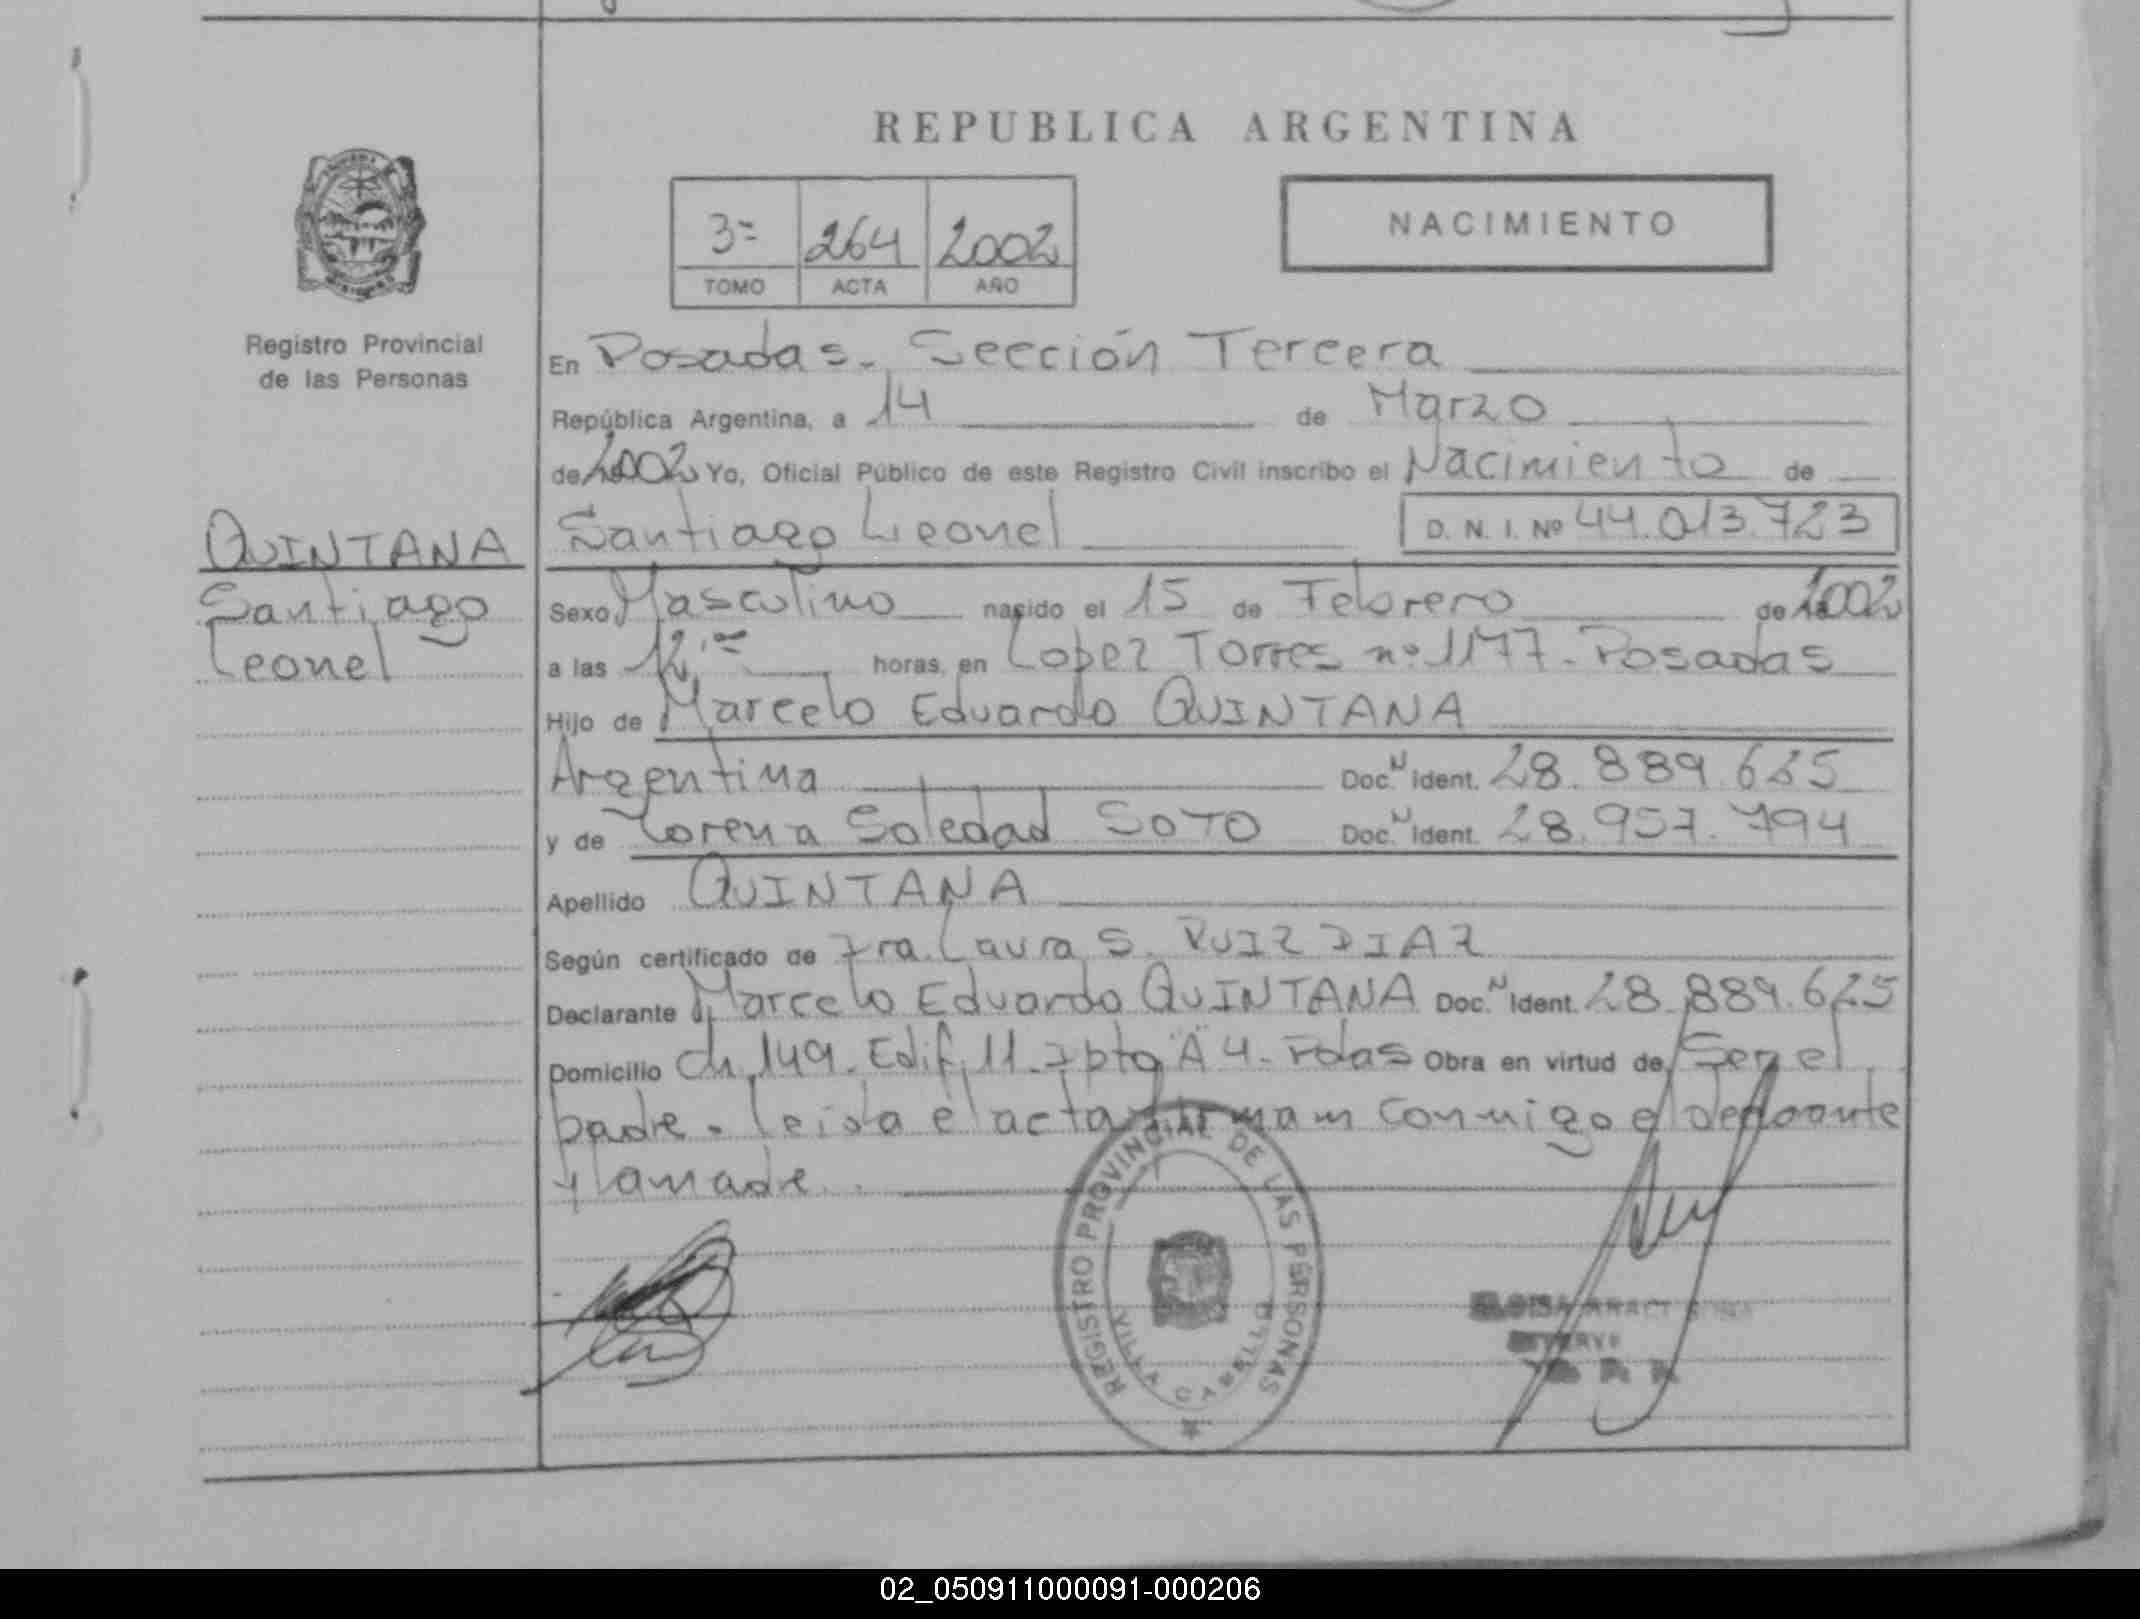 REPUBLICA ARGENTINA
3ª 264 2002
TOMO ACTA AÑO
NACIMIENTO
Registro Provincial
de las Personas
QUINTANA
Santiago
Leonel
En Posadas - Sección Tercera
República Argentina, a 14 de Marzo
de 2002 Yo, Oficial Público de este Registro Civil inscribo el Nacimiento de
Santiago Leonel D. N. I. Nº 44.013.723
Sexo Masculino nacido el 15 de Febrero de 2002
a las 12, horas, en Lopez Torres nº 1177 - Posadas
Hijo de Marcelo Eduardo QUINTANA
Argentina Doc. N Ident. 28.889.625
y de Lorena Soledad SOTO Doc. N Ident. 28.957.794
Apellido QUINTANA
Según certificado de Dra. Laura S. RUIZ DIAZ
Declarante Marcelo Eduardo QUINTANA Doc. N Ident. 28.889.625
Domicilio Ch. 149 - Edif. 11 - Dpto "A" 4 - Pdas Obra en virtud de Ser el
padre. Leida el acta firman conmigo el declarante
y la madre.
REGISTRO PROVINCIAL DE LAS PERSONAS
VILLA CABELLO
02_050911000091-000206